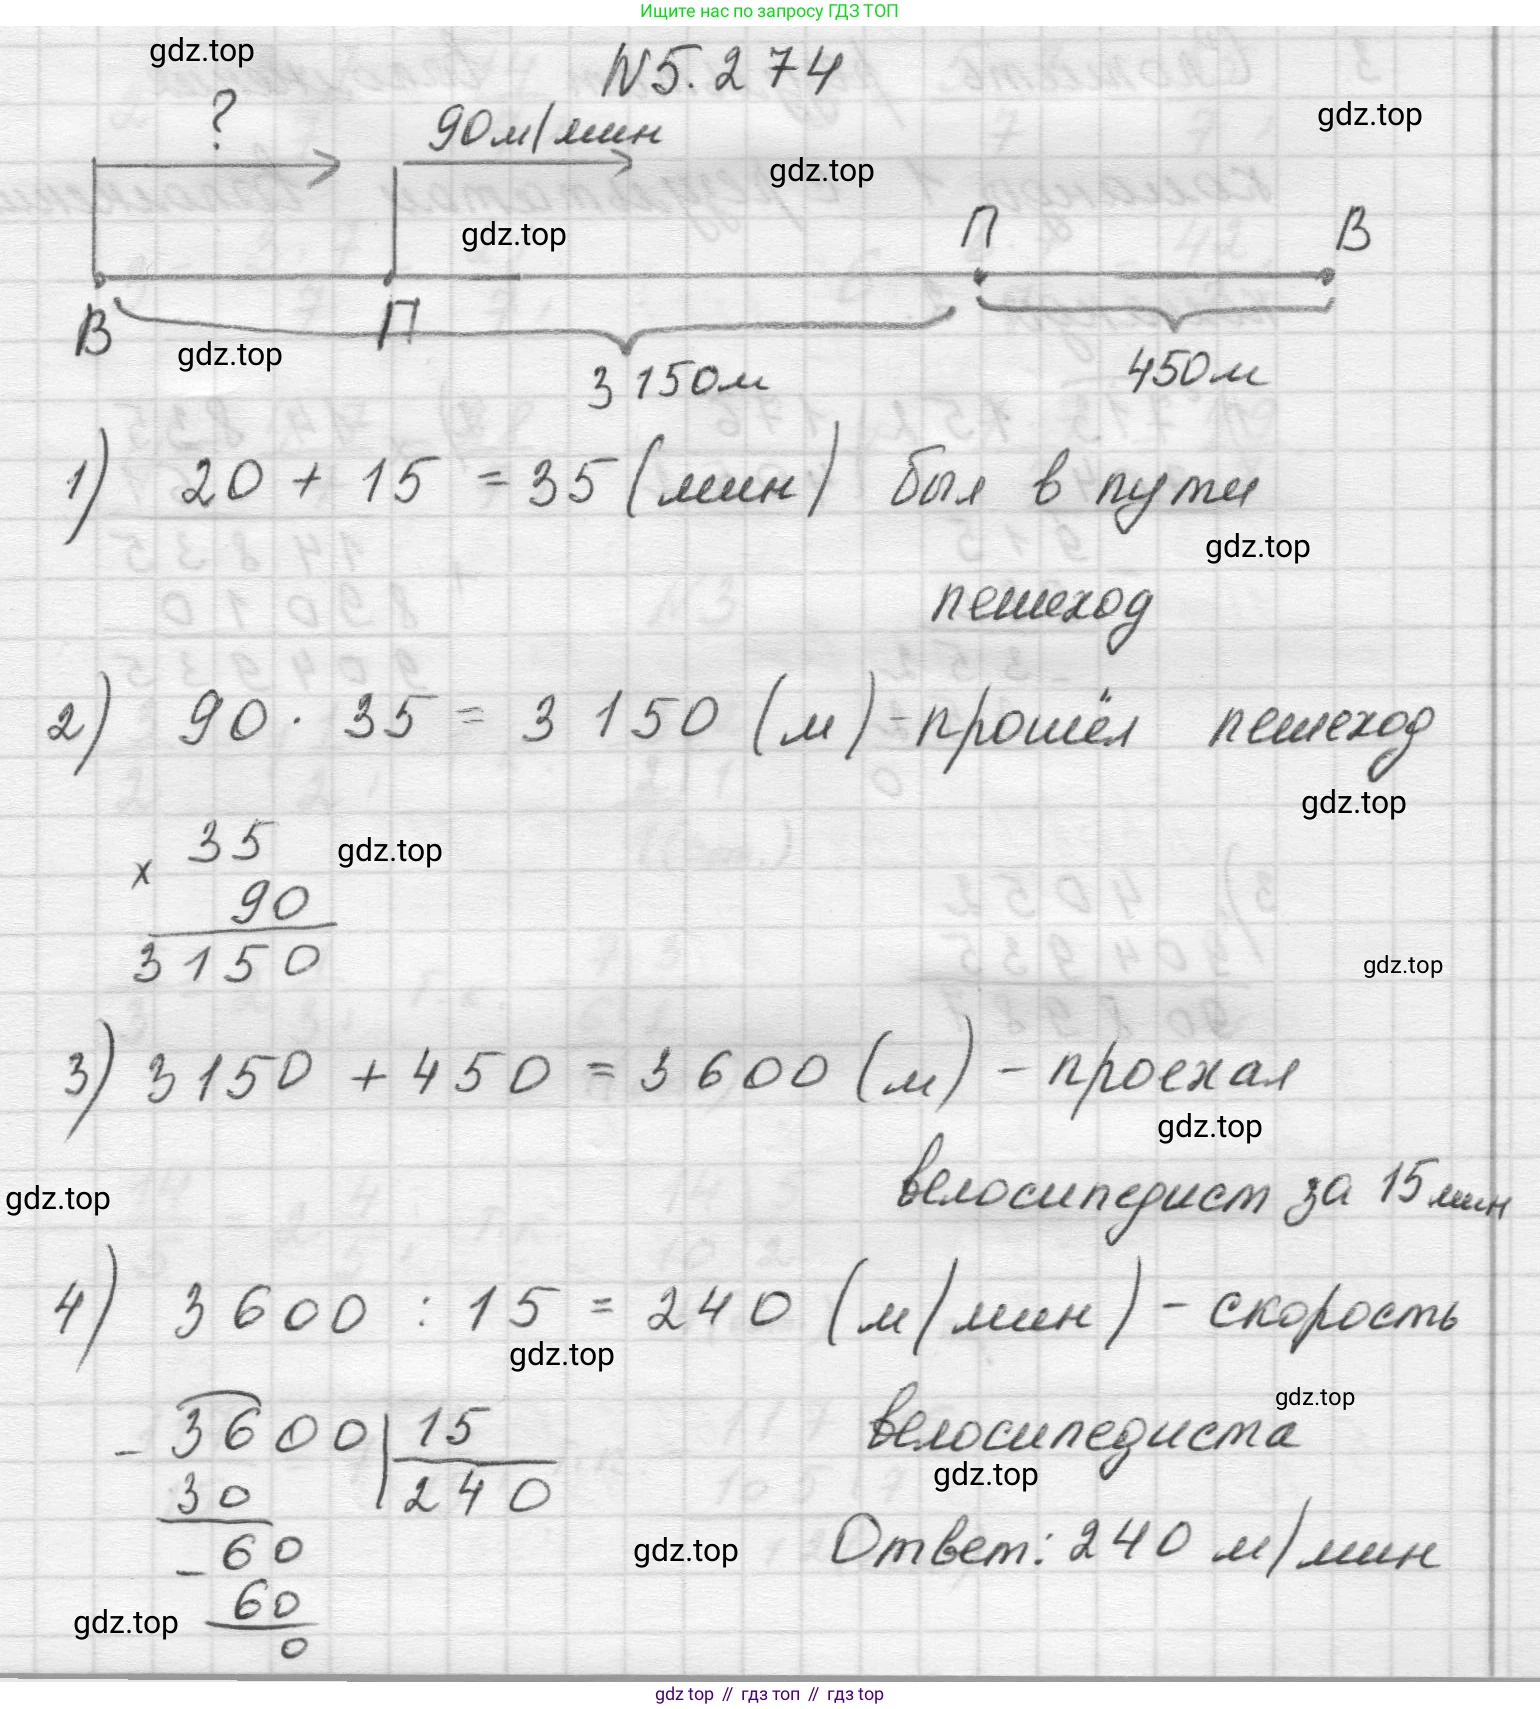 Ищите нас по запросу ГДЗ ТОП
gdz.top
N 5.274
?
90м/мин
gdz.top
gdz.top
gdz.top
П
В
В
П
gdz.top
3 150м
450м
1) 20 + 15 = 35 (мин) был в пути
gdz.top
пешеход
2) 90 · 35 = 3 150 (м) - прошёл пешеход
gdz.top
35
gdz.top
x
90
3150
gdz.top
3) 3150 + 450 = 3600 (м) - проехал
gdz.top
велосипедист за 15 мин
gdz.top
4) 3600 : 15 = 240 (м/мин) - скорость
gdz.top
gdz.top
- 3600 | 15
велосипедиста
gdz.top
30
240
- 60
gdz.top
Ответ: 240 м/мин
60
gdz.top
0
gdz top // гдз топ // gdz.top